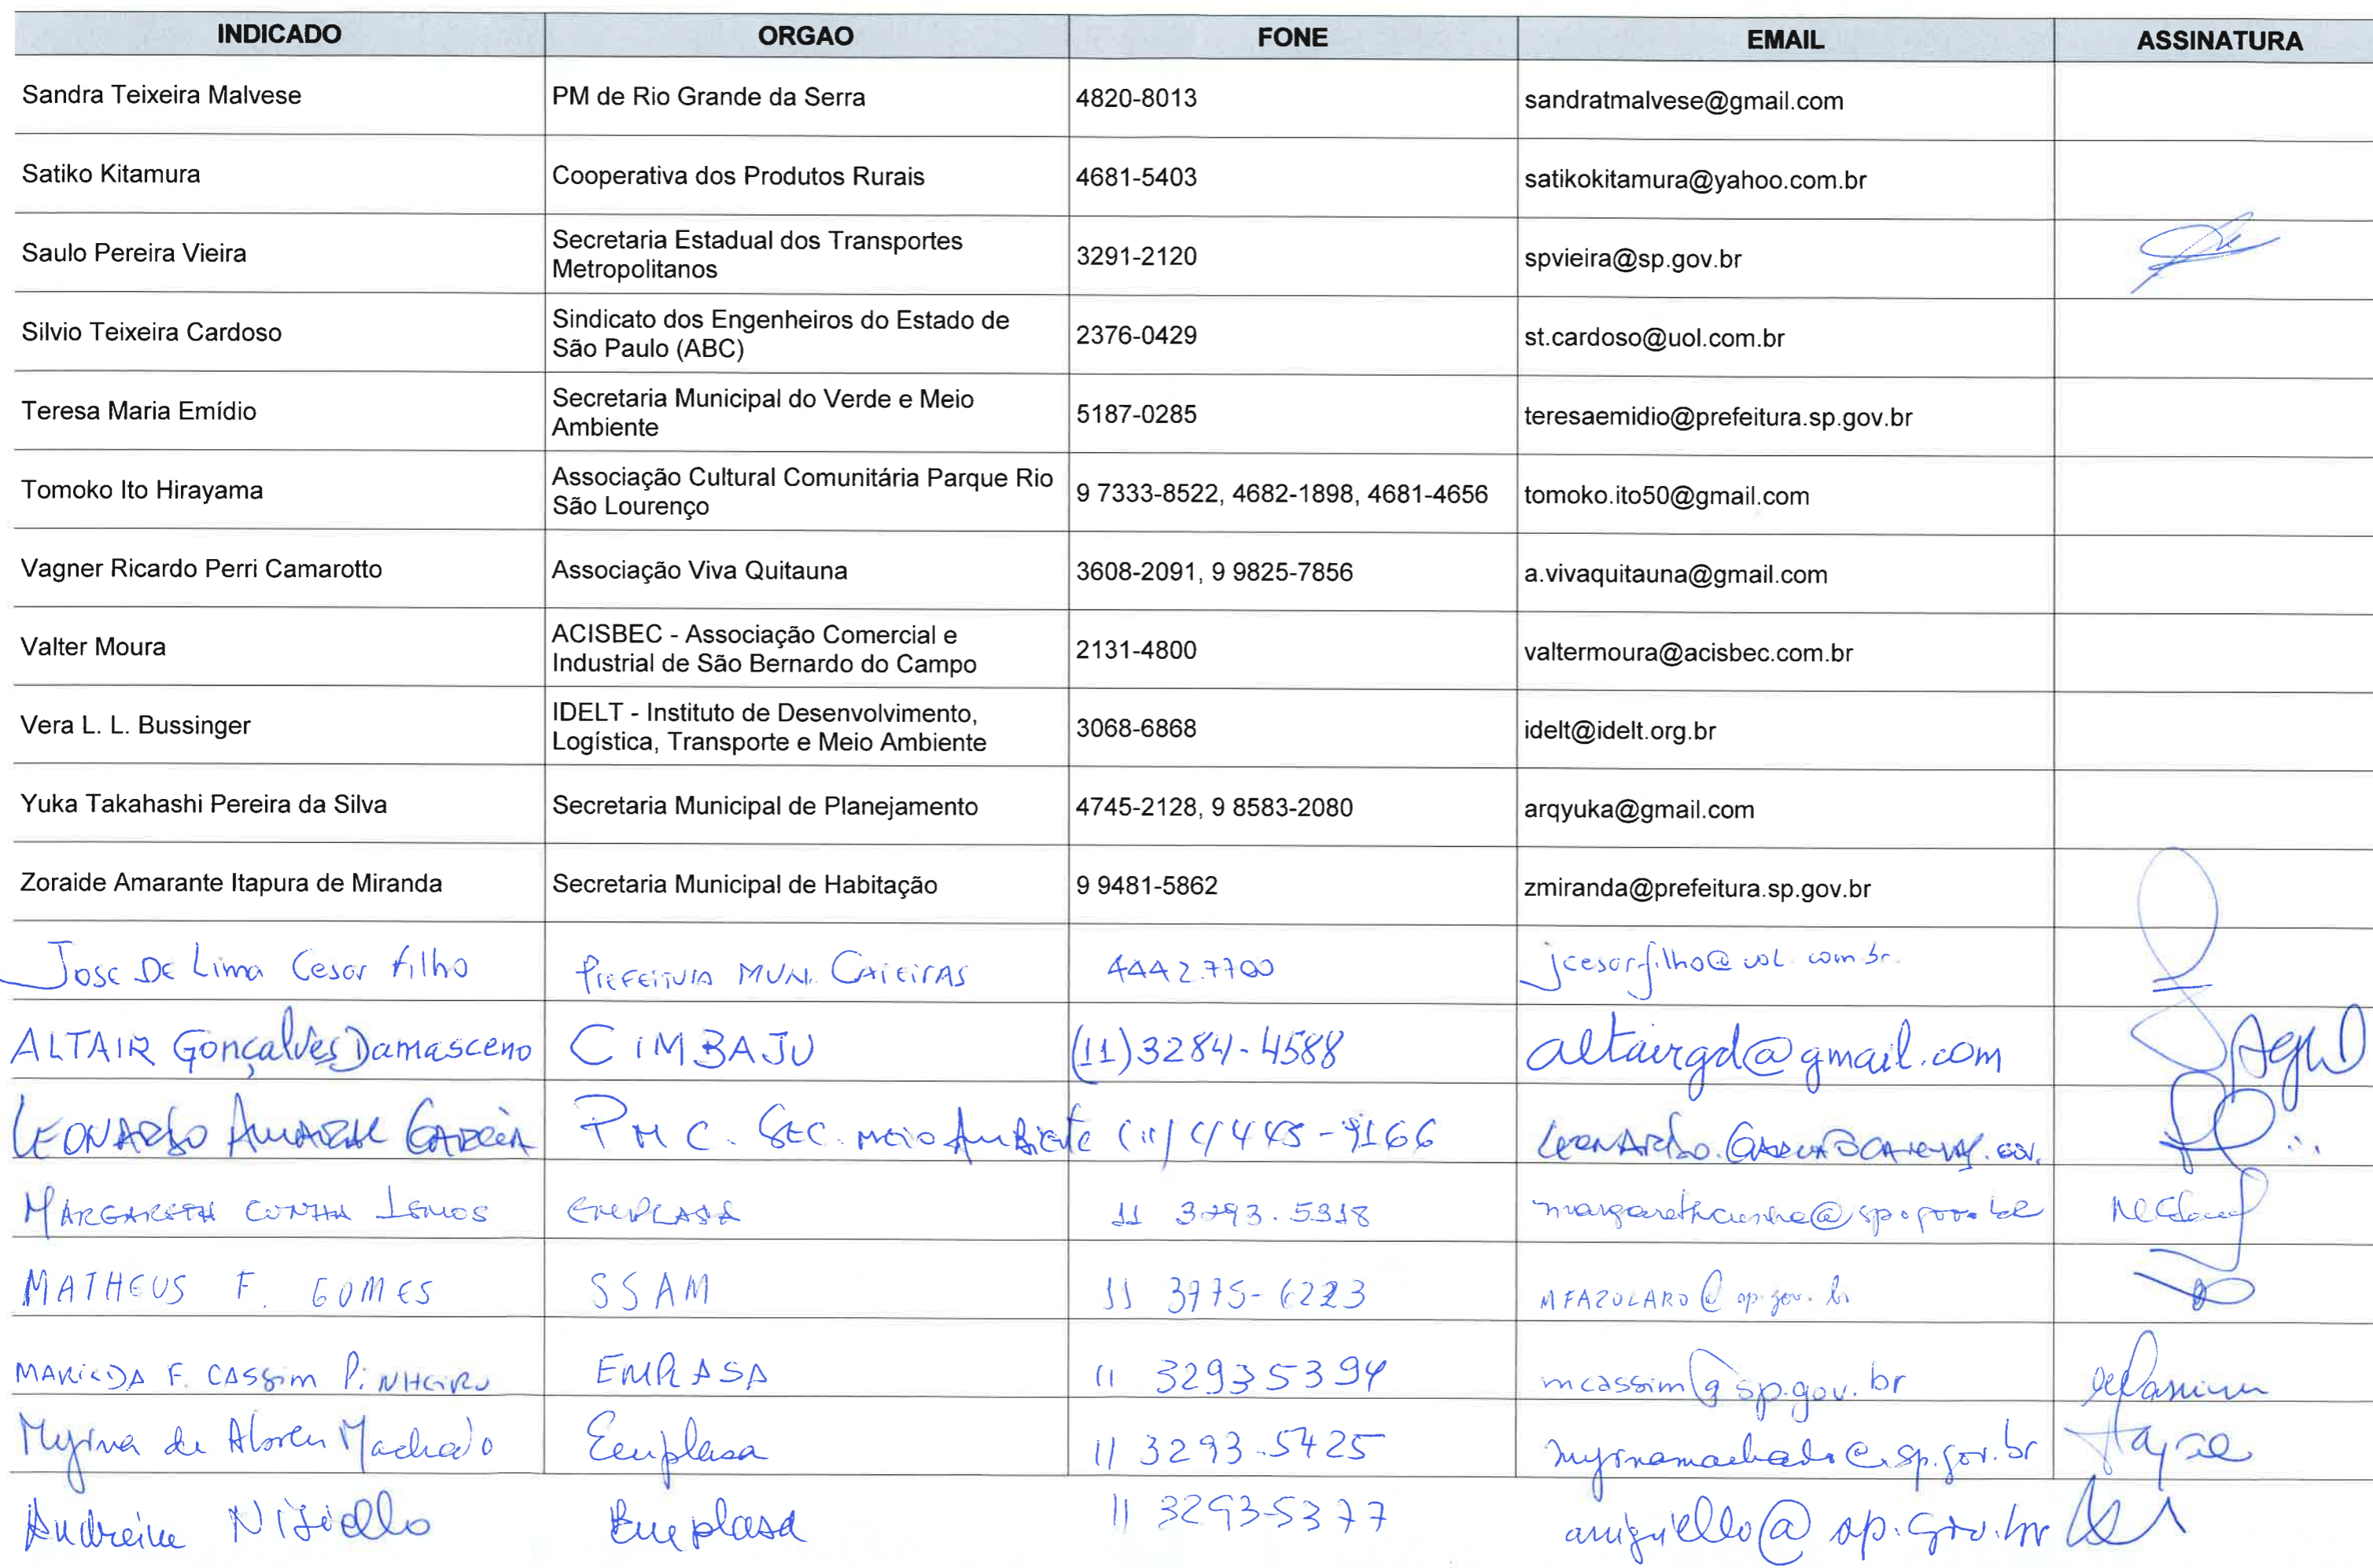 INDICADO ORGAO FONE EMAIL ASSINATURA
Sandra Teixeira Malvese PM de Rio Grande da Serra 4820-8013 sandratmalvese@gmail.com
Satiko Kitamura Cooperativa dos Produtos Rurais 4681-5403 satikokitamura@yahoo.com.br
Saulo Pereira Vieira Secretaria Estadual dos Transportes
Metropolitanos 3291-2120 spvieira@sp.gov.br
Silvio Teixeira Cardoso Sindicato dos Engenheiros do Estado de
São Paulo (ABC) 2376-0429 st.cardoso@uol.com.br
Teresa Maria Emídio Secretaria Municipal do Verde e Meio
Ambiente 5187-0285 teresaemidio@prefeitura.sp.gov.br
Tomoko Ito Hirayama Associação Cultural Comunitária Parque Rio
São Lourenço 9 7333-8522, 4682-1898, 4681-4656 tomoko.ito50@gmail.com
Vagner Ricardo Perri Camarotto Associação Viva Quitauna 3608-2091, 9 9825-7856 a.vivaquitauna@gmail.com
Valter Moura ACISBEC - Associação Comercial e
Industrial de São Bernardo do Campo 2131-4800 valtermoura@acisbec.com.br
Vera L. L. Bussinger IDELT - Instituto de Desenvolvimento,
Logística, Transporte e Meio Ambiente 3068-6868 idelt@idelt.org.br
Yuka Takahashi Pereira da Silva Secretaria Municipal de Planejamento 4745-2128, 9 8583-2080 arqyuka@gmail.com
Zoraide Amarante Itapura de Miranda Secretaria Municipal de Habitação 9 9481-5862 zmiranda@prefeitura.sp.gov.br
Jose De Lima Cesar Filho PREFEITURA MUN. CAIEIRAS 4442.7700 jcesarfilho@uol.com.br.
ALTAIR Gonçalves Damasceno CIMBAJU (11)3284-4588 altairgd@gmail.com
LEONARDO AMARAL GARCIA PMC. SEC. MEIO AMBIENTE (11) 4445-9166
MARGARETH CUNHA LEMOS EMPLASA 11 3293.5318 margarethcunha@sp.gov.br
MATHEUS F. GOMES SSAM 11 3775-6223 MFAZOLARO@sp.gov.br
MARILDA F. CASSIM PINHEIRO EMPLASA 11 32935394 mcassim@sp.gov.br
Myrna de Abreu Machado Emplasa 11 3293.5425 myrnamachado@sp.gov.br
Emplasa 11 3293-5377